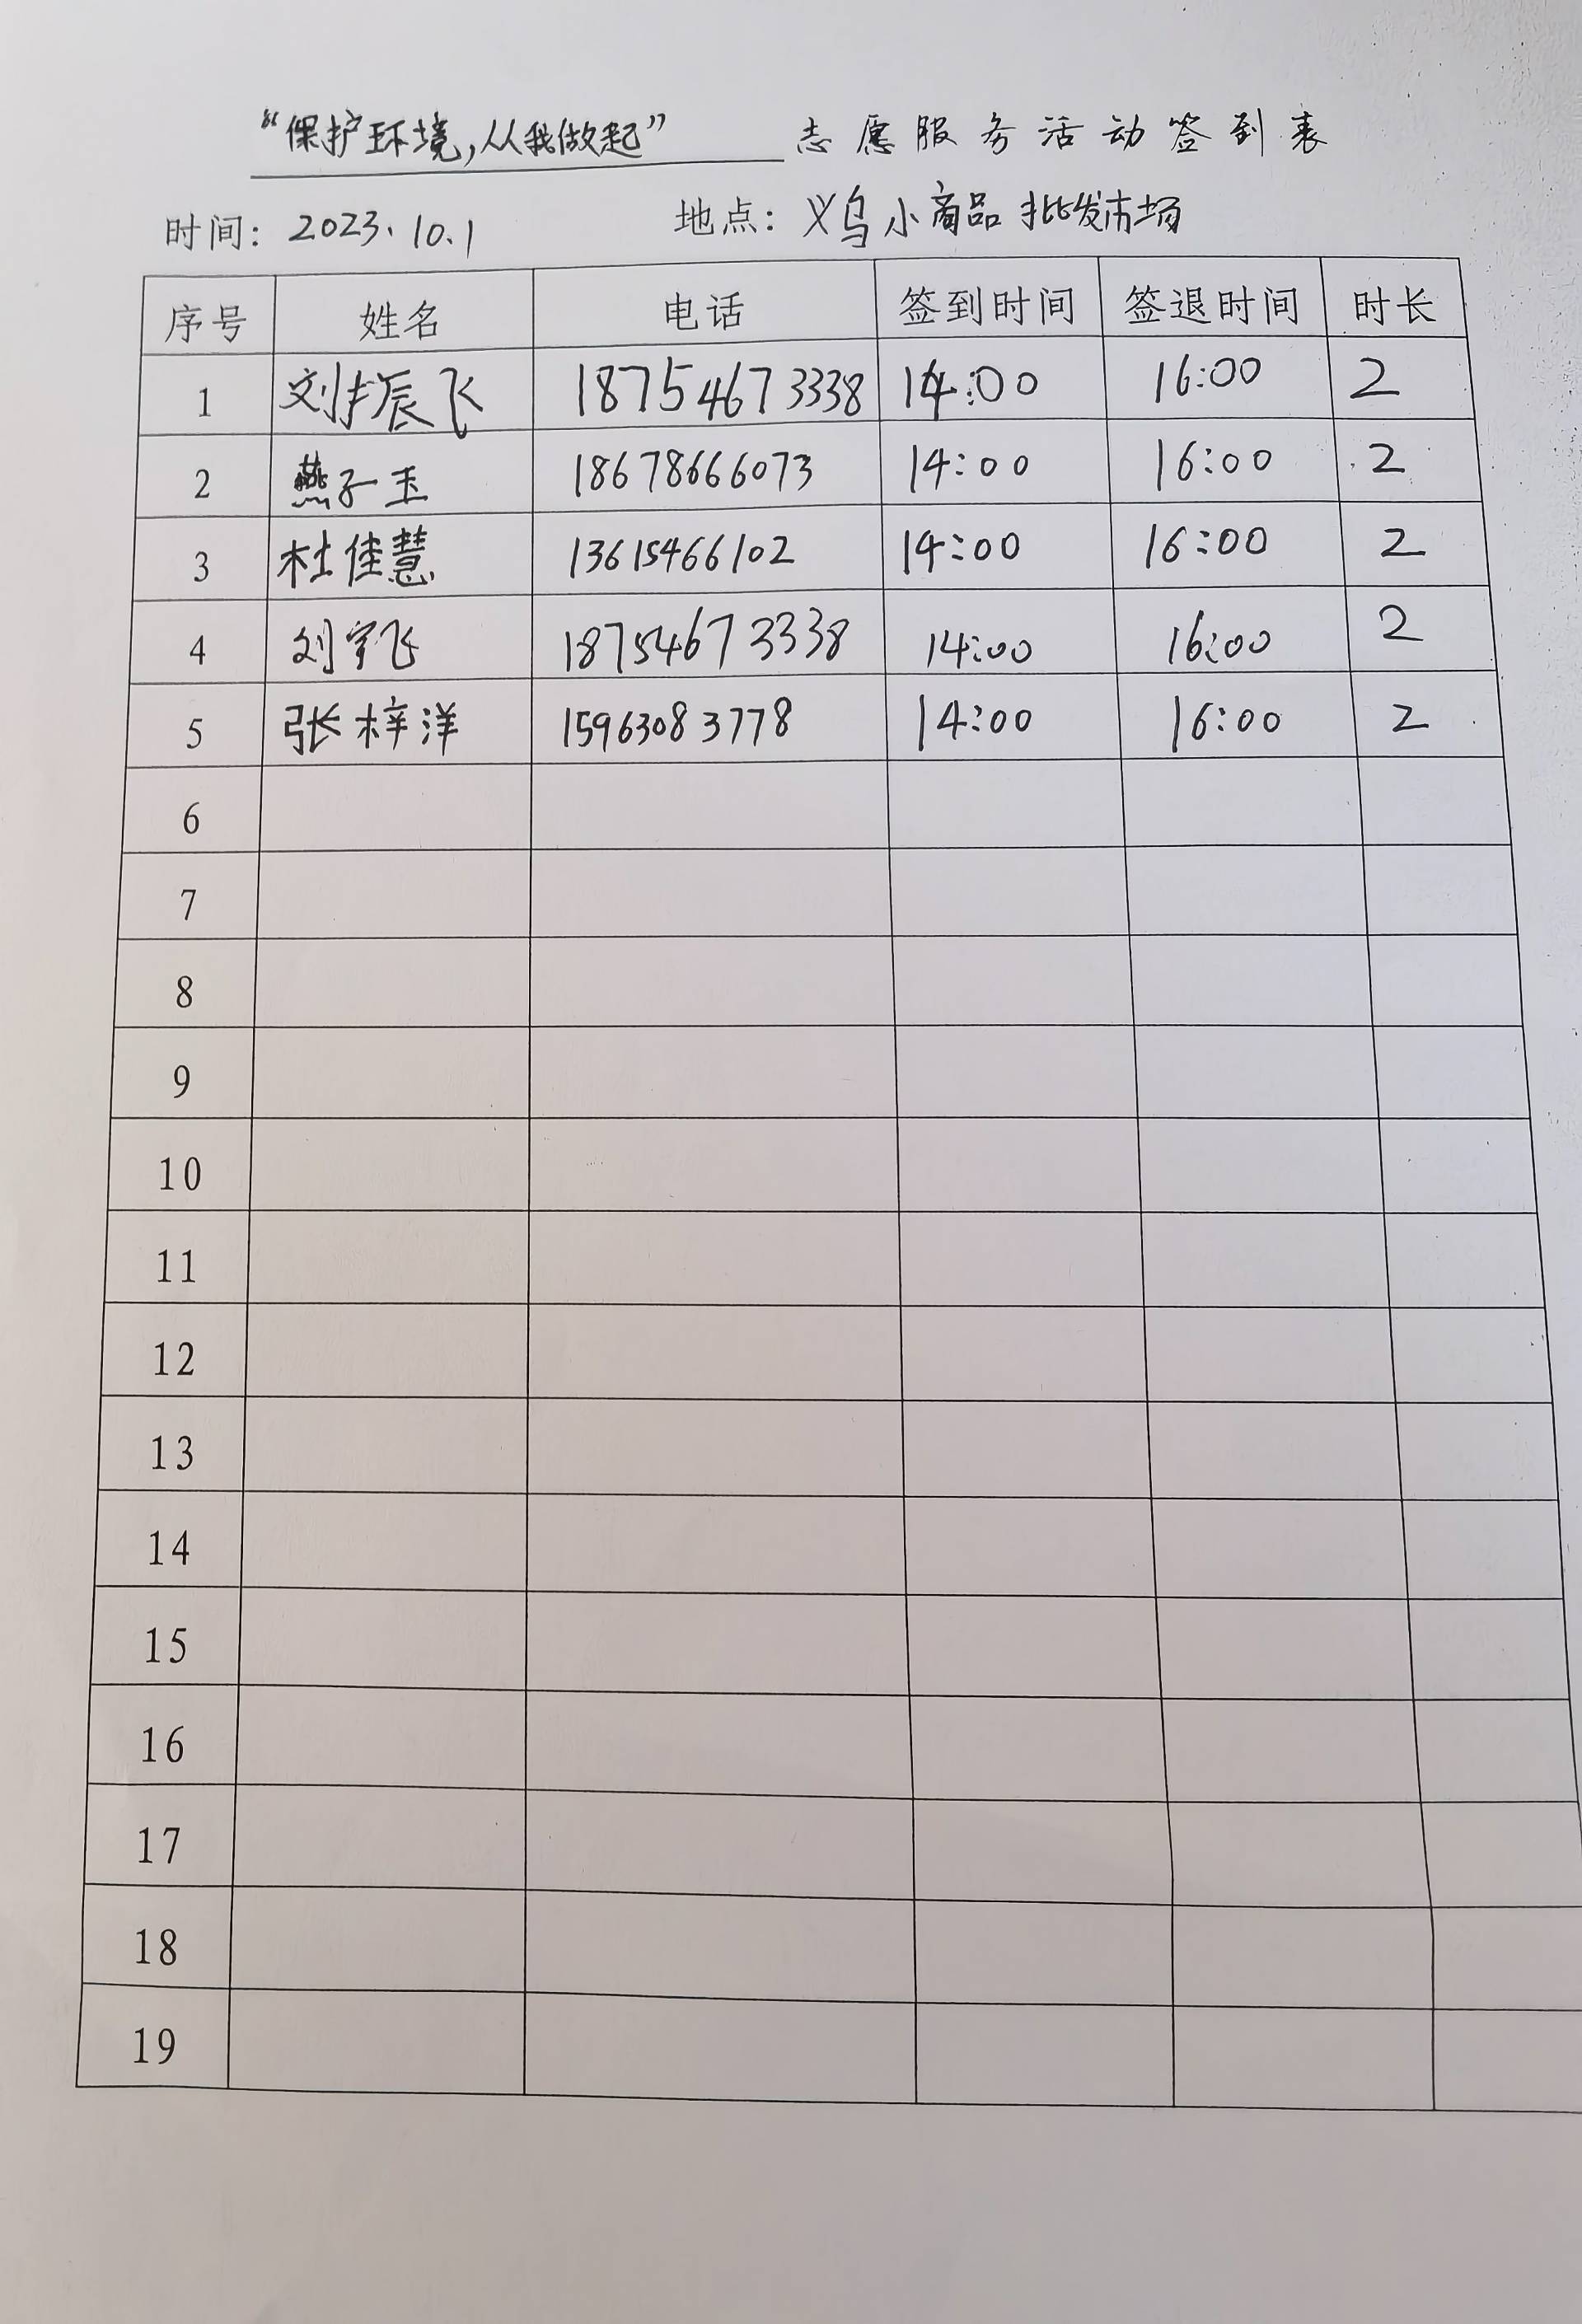 “保护环境,从我做起” 志愿服务活动签到表
时间: 2023.10.1 地点: 义乌小商品批发市场
序号 姓名 电话 签到时间 签退时间 时长
1 刘振飞 18754673338 14:00 16:00 2
2 燕子玉 18678666073 14:00 16:00 2
3 杜佳慧 13615466102 14:00 16:00 2
4 刘宇飞 18754673338 14:00 16:00 2
5 张梓洋 15963083778 14:00 16:00 2
6
7
8
9
10
11
12
13
14
15
16
17
18
19